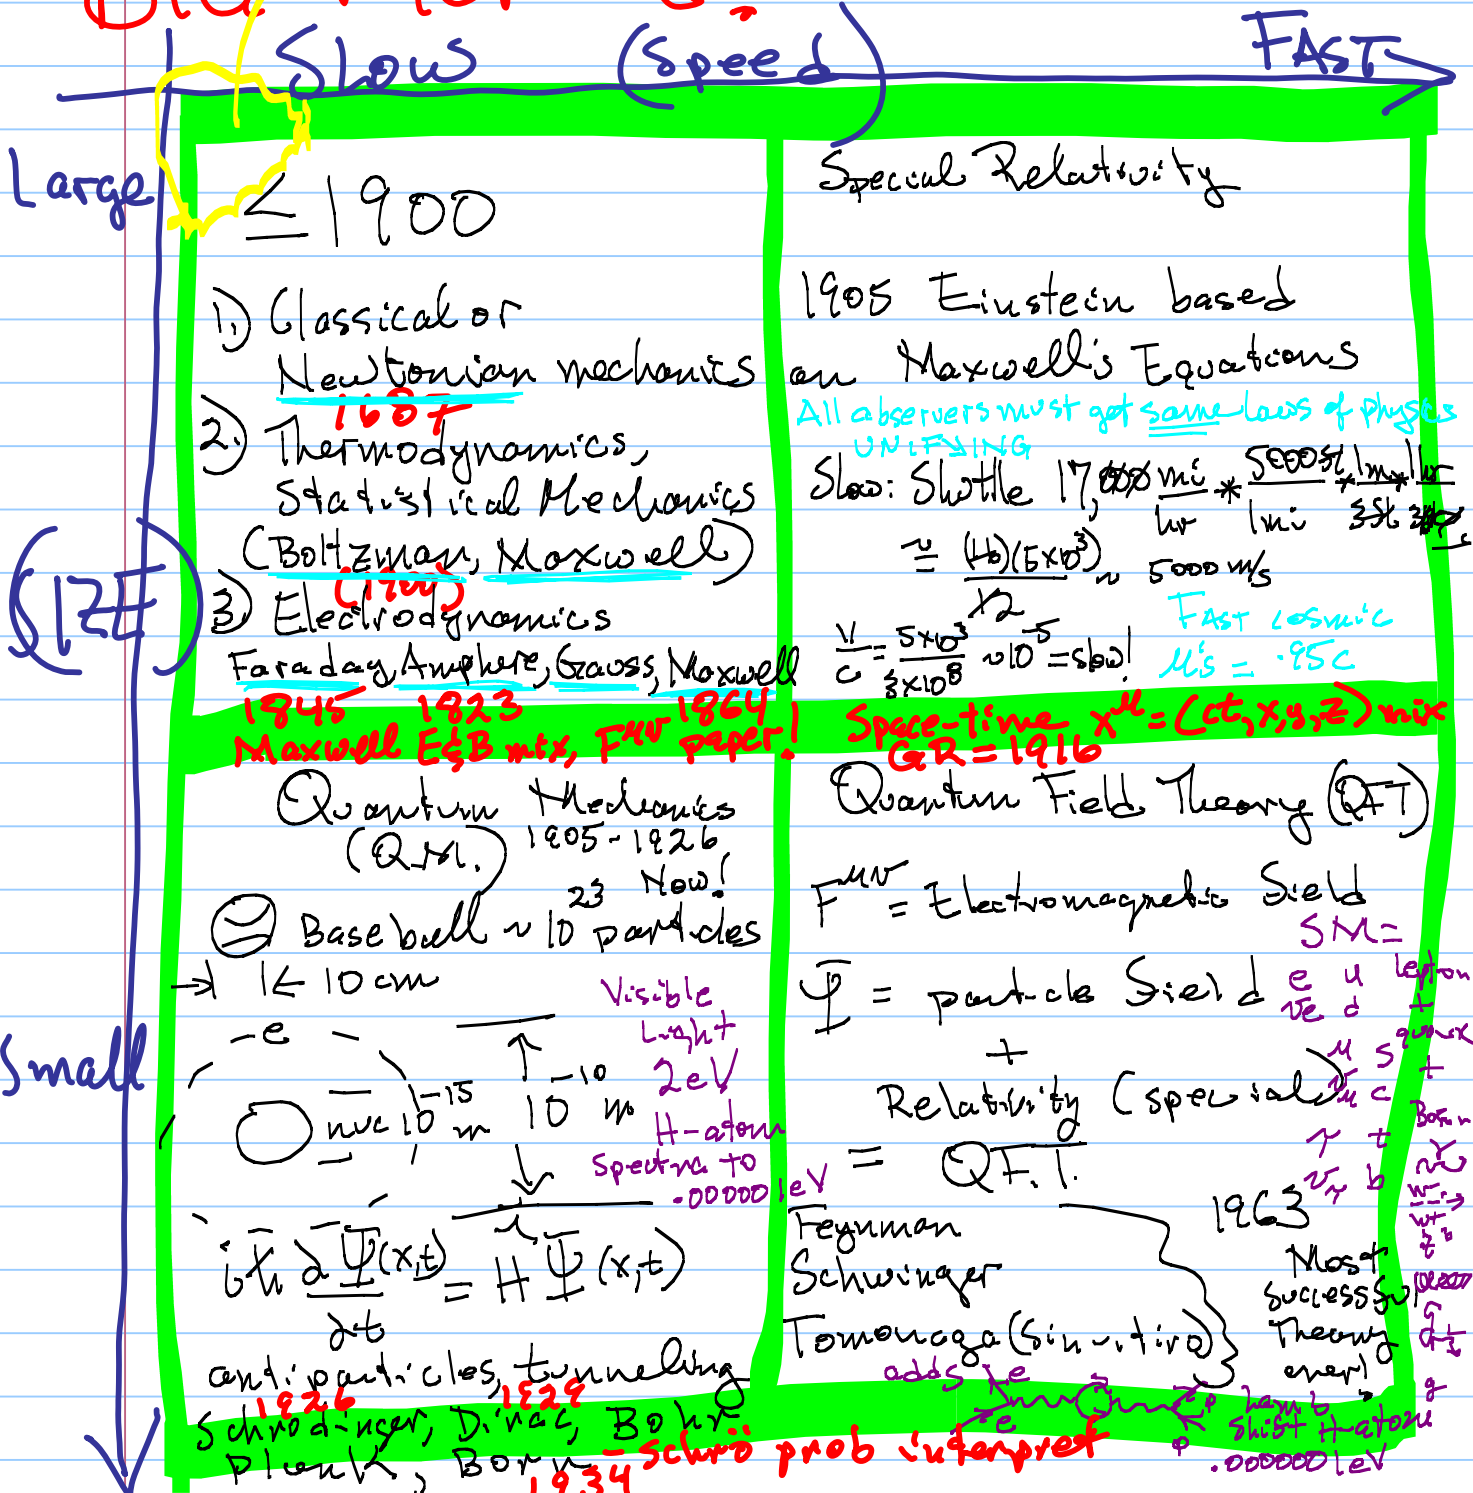 SLOW (Speed) FAST
Large
(SIZE)
Small
≤ 1900
1.) Classical or
Newtonian mechanics
1687
2.) Thermodynamics,
Statistical Mechanics
(Boltzman, Maxwell)
(1900)
3) Electrodynamics
Faraday, Amphere, Gauss, Maxwell
1845 1823 1864
Maxwell E&B mix, F^μν paper!
Special Relativity
1905 Einstein based
on Maxwell's Equations
All observers must get same laws of physics
UNIFYING
Slow: Shuttle 17,000 mi/hr * 5000ft/1mi * 1m/3ft * 1hr
≈ (16)(5×10³)/12 ~ 5000 m/s
v/c = 5×10³/3×10⁸ ~ 10⁻⁵ = slow!
FAST cosmic
μ's = .95c
Space-time x^μ = (ct, x, y, z) mix
GR = 1916
Quantum Mechanics
(Q.M.) 1905-1926
Now!
Baseball ~ 10²³ particles
→| |← 10 cm
-e
nuc 10⁻¹⁵ m
10⁻¹⁰ m
Visible
Light
2eV
H-atom
Spectra to
.000001eV
iħ ∂Ψ(x,t)/∂t = HΨ(x,t)
antiparticles, tunneling
1926 1929
Schrodinger, Dirac, Bohr
Plank, Born - Schrö prob interpret
1934
Quantum Field Theory (QFT)
F^μν = Electromagnetic Field
Ψ = particle field
+
Relativity (special)
= Q.F.T.
SM =
e u lepton
νe d +
μ s quark
νμ c +
τ t Boson
ντ b
γ
W-
W+
Z⁰
g
Feynman
Schwinger
Tomonaga (Sinitiro)
1963
Most
successful
Theory
ever!
adds e
e
p
p
Lamb
Shift H-atom
.0000001eV